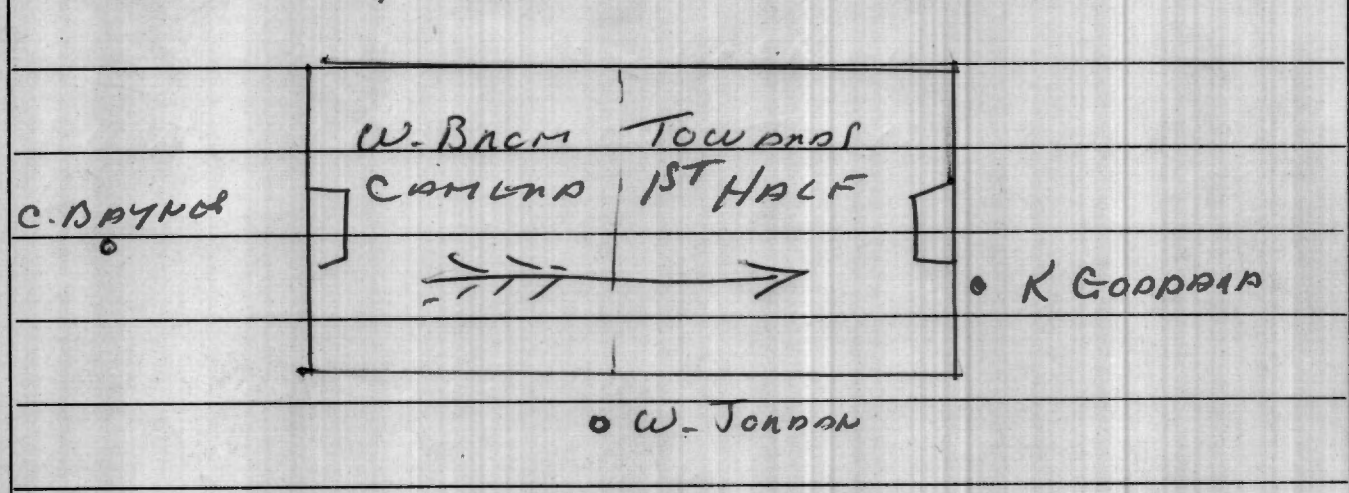 W-BROM TOWARDS
CAMERA 1ST HALF
C. BAYNES
K GODDARD
W- JORDAN